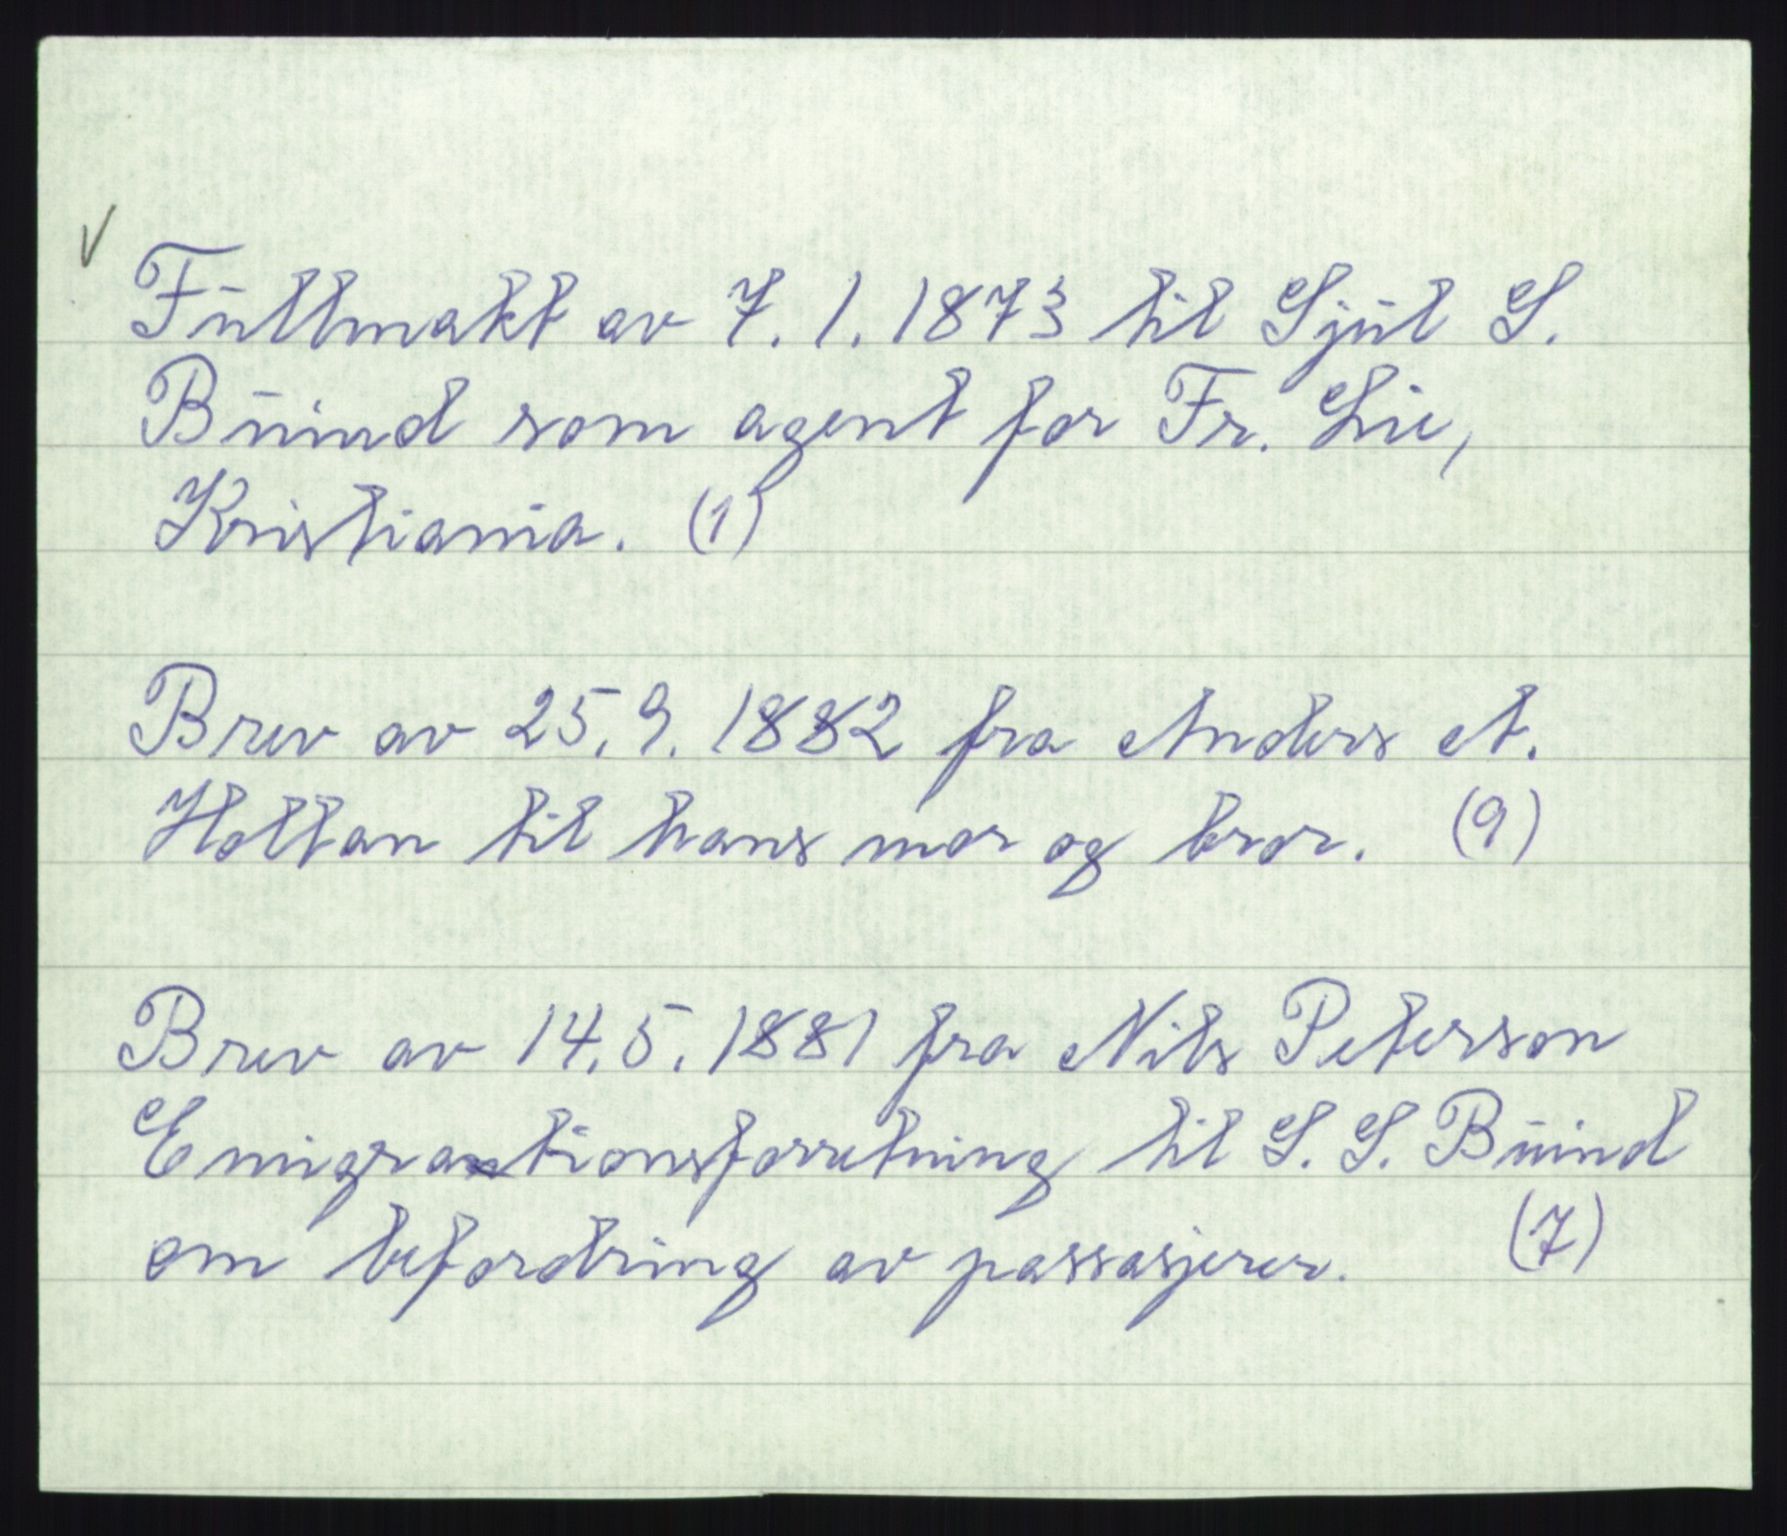 ✓
Fullmakt av 7.1.1873 til Sjul S.
Buind som agent for Fr. Lie,
Kristiania. (1)
Brev av 25.9.1882 fra Anders A.
Holtan til hans mor og bror. (9)
Brev av 14.5.1881 fra Nils Peterson
Emigrationsforretning til S. S. Buind
om befordring av passasjerer. (7)